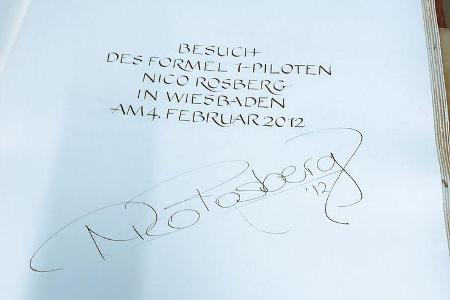 BESUCH
DES FORMEL 1-PILOTEN
NICO ROSBERG
IN WIESBADEN
AM 4. FEBRUAR 2012
Nico Rosberg
'12